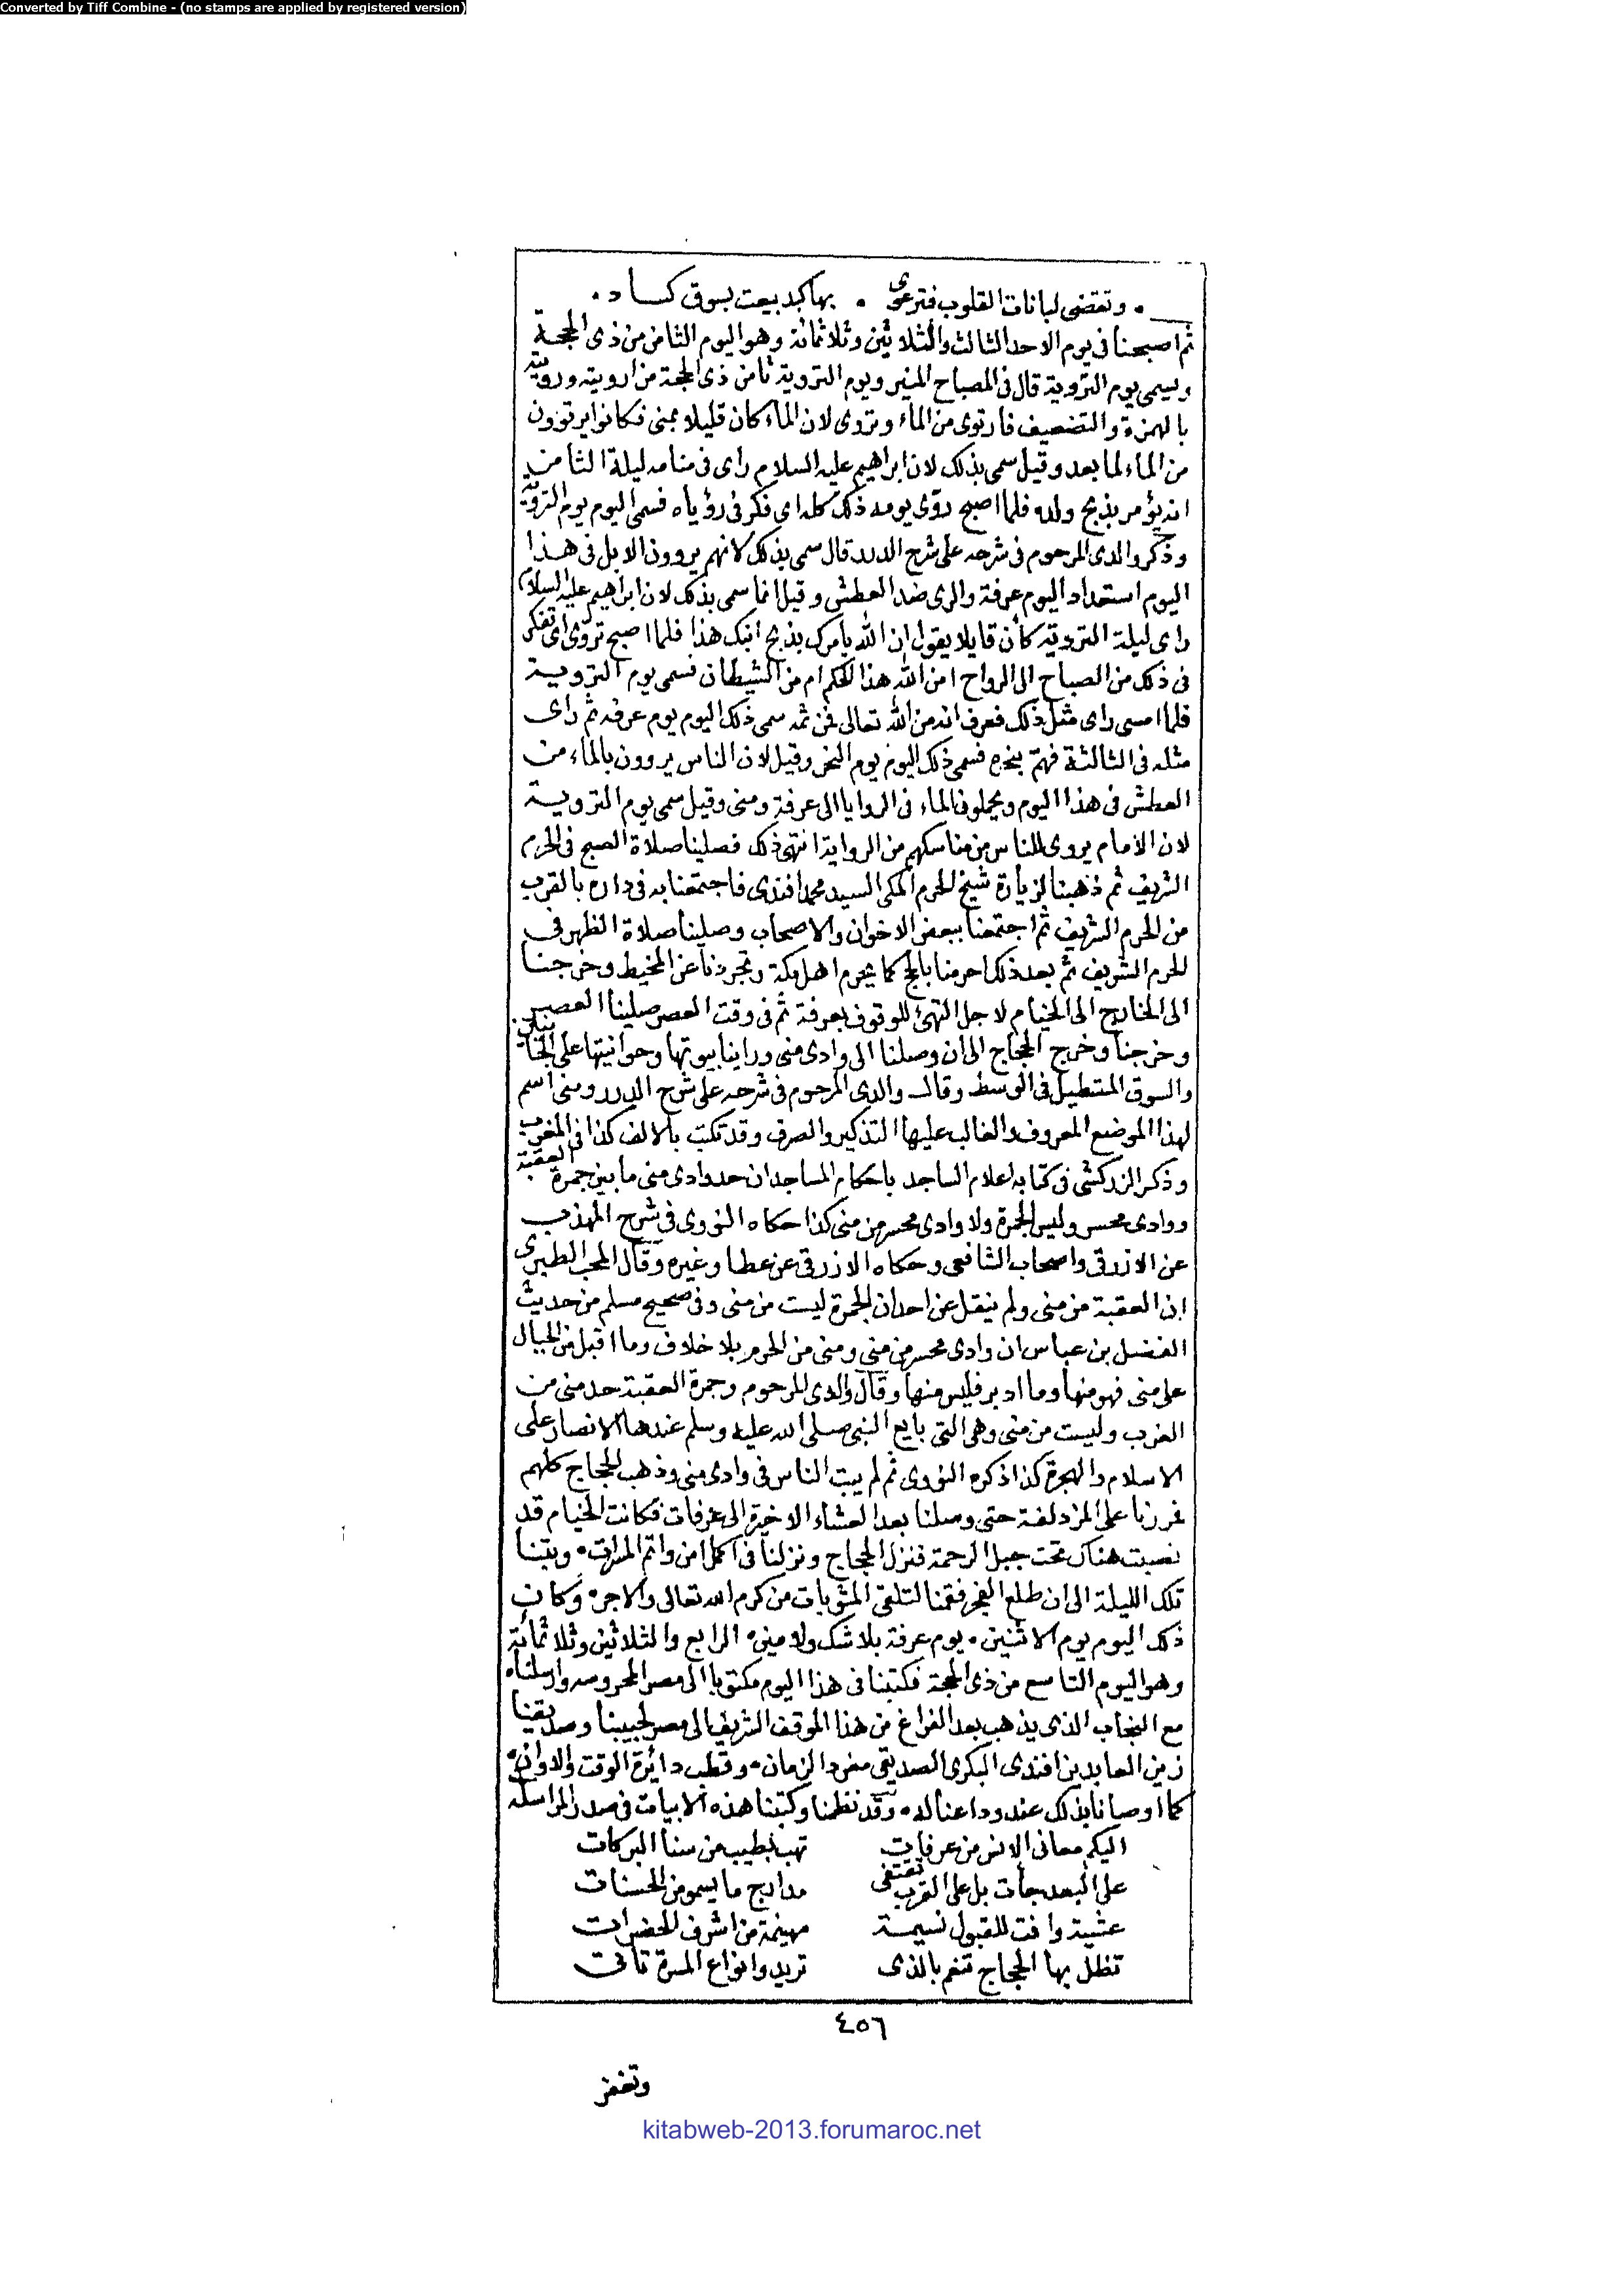 Converted by Tiff Combine - (no stamps are applied by registered version)
وتقتضى لبانات القلوب فترعوى . بها كبد بيعت بسوق كساد .
ثم اصبحنا فى يوم الاحد الثالث والثلاثين وثلاثمائة وهو اليوم الثامن من ذى الحجة
ويسمى يوم التروية قال فى المصباح المنير ويوم التروية ثامن ذى الحجة من ارويته ورويته
بالهمزة والتضعيف فارتوى من الماء وتروى لان الماء كان قليلا بمنى فكانوا يرتوون
من الماء لما بعد وقيل سمى بذلك لان ابراهيم عليه السلام راى فى منامه ليلة الثامن
انه يؤمر بذبح ولده فلما اصبح روّى يومه ذلك كله اى فكر فى رؤياه فسمى اليوم يوم التروية
وذكر والدى المرحوم فى شرحه على شرح الدرر قال سمى بذلك لانهم يروون الابل فى هذا
اليوم استعدادا ليوم عرفة والرى ضد العطش وقيل انما سمى بذلك لان ابراهيم عليه السلام
راى ليلة التروية كأن قايلا يقول ان الله يأمرك بذبح ابنك هذا فلما اصبح تروّى اى تفكر
فى ذلك من الصباح الى الرواح امن الله هذا الحكم ام من الشيطان فسمى يوم التروية
فلما امسى راى مثل ذلك فعرف انه من الله تعالى فمن ثمه سمى ذلك اليوم يوم عرفة ثم راى
مثله فى الثالثة فهمّ بنحره فسمى ذلك اليوم يوم النحر وقيل لان الناس يروون بالماء من
العطش فى هذا اليوم ويحملون الماء فى الروايا الى عرفة ومنى وقيل سمى يوم التروية
لان الأمام يروى للناس من مناسكهم من الرواية انتهى ذلك فصلينا صلاة الصبح فى الحرم
الشريف ثم ذهبنا لزيارة شيخ الحرم المكى السيد محمد افندى فاجتمعنا به فى داره بالقرب
من الحرم الشريف ثم اجتمعنا ببعض الاخوان والاصحاب وصلينا صلاة الظهر فى
الحرم الشريف ثم بعد ذلك احرمنا بالحج كما يحرم اهل مكة وتجردنا عن المخيط وخرجنا
الى الخارج الى الخيام لاجل التهئ للوقوف بعرفة ثم فى وقت العصر صلينا العصر
وخرجنا وخرج الحجاج الى ان وصلنا الى وادى منى وراينا بيوتها وحوانيتها على الجانبين
والسوق المتطيل فى الوسط وقال والدى المرحوم فى شرحه على شرح الدرر ومنى اسم
لهذا الموضع المعروف والغالب عليها التذكير والصرف وقد تكتب بالالف كذا فى المغرب
وذكر الزركشى فى كتابه اعلام الساجد باحكام المساجد ان حد وادى منى ما بين جمرة العقبة
ووادى محسر وليس الجمرة ولا وادى محسر من منى كذا حكاه النووى فى شرح المهذب
عن الازرقى واصحاب الشافعى وحكاه الازرقى عن عطا وغيره وقال المحب الطبرى
ان العقبة من منى ولم ينقل عن احد ان الجمرة ليست من منى وفى صحيح مسلم من حديث
الفضل بن عباس ان وادى محسر من منى ومنى من الحرم بلا خلاف وما اقبل من الجبال
على منى فهو منها وما ادبر فليس منها وقال والدى المرحوم وجمرة العقبة حد منى من
الغرب وليست من منى وهى التى بايع النبى صلى الله عليه وسلم عندها الانصار على
الاسلام والهجرة كذا ذكره النووى ثم لم يبت الناس فى وادى منى وذهب الحجاج كلهم
فمررنا على المزدلفة حتى وصلنا بعد العشاء الاخرة الى عرفات فكانت الخيام قد
نصبت هناك تحت جبل الرحمة فنزل الحجاج ونزلنا فى اكمل امن واتم المسرات وبتنا
تلك الليلة الى ان طلع الفجر فقمنا لتلقى المثوبات من كرم الله تعالى والاجر، وكان
ذلك اليوم يوم الاثنين، يوم عرفة بلا شك ولا مين، الرابع والثلاثين وثلاثمائة
وهو اليوم التاسع من ذى الحجة فكتبنا فى هذا اليوم مكتوبا الى مصر المحروسه وارسلناه
مع النجاب الذى يذهب بعد الفراغ من هذا الموقف الشريف الى مصر لحبيبنا وصديقنا
زين العابدين افندى البكرى الصديقى مفرد الزمان، وقطب دائرة الوقت والاوان،
كما اوصانا بذلك عند وداعنا له، وقد نظمنا وكتبنا هذه الابيات فى صدر المراسله
اليكم معانى الانس من عرفات تهب بطيب من سنا البركات
على البعد جاءت بل على القرب تقتفى مدارج ما يسمو من الحسنات
عشية وافت للقبول نسيمة مهينمة من اشرف الحضرات
تظل بها الحجاج تنعم بالذى تريد وانواع المسرة تاتى
٤٥٦
kitabweb-2013.forumaroc.net